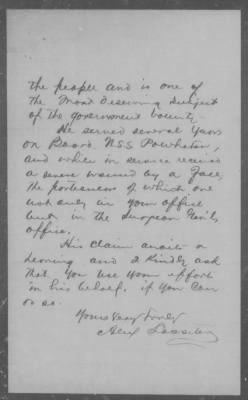 the people and is one of
the most deserving subject
of the government bounty.
He served several years
on Board U.S.S. Powhatan,
and while in service received
a severe wound by a
the of which are
not only in your office
but in the Surgeon Gen'ls
office.
His claim await a
hearing and I kindly ask
that you use your effort
in his behalf, if you can
do so.
Yours Very Truly
Alex